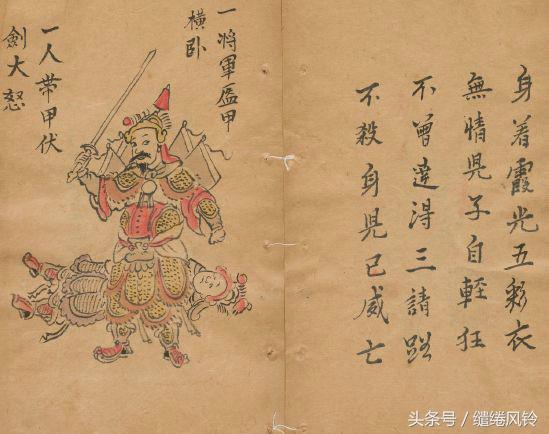 身着霞光五彩衣
無情児子自輕狂
不曾達得三請路
不殺身児已威亡
一将軍盔甲
横卧
一人带甲伏
劍大怒
头条号／缱绻风铃